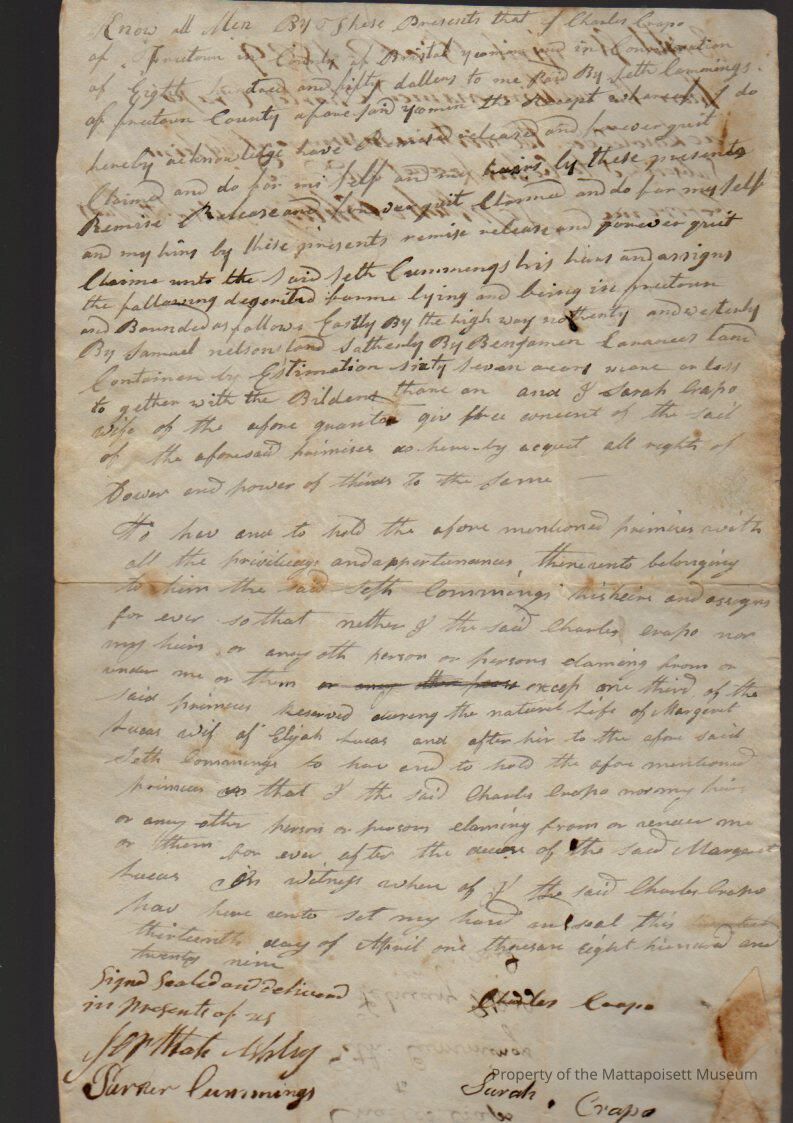 Know all Men By These Presents that I Charles Crapo
of Freetown in County of Bristol yeoman and in Consideration
of Eight hundred and fifty dollers to me Paid By Seth Cummings
of freetown County afore said yomen the Receipt whareof I do
hereby acknowledge have release and forever quit
Claimed and do for mi self and my hairs by these presents
Remise Release and forever quit Claimed and do for my self
and my hirs by these presents remise release and forever quit
Claime unto the said Seth Cummings his hiars and assigns
the following farme lying and being in freetown
and Bounded as follows Eastly By the high way and westerly
By Samuel nelson land Sutherly By Benjamen land
Contanen by Estimation sixty seven acors more or less
to gether with the thare on and I Sarah Crapo
wife of the afore giv free concent of the said
of the aforesaid primises do here-by acquit all rights of
Dower and power of thirds to the same
To hav and to hold the afore mentioned primises with
all the and appurtenances thereunto belonging
to him the said Seth Commings his heirs and assigns
for ever so that nether I the said Charles Crapo nor
my heirs or any oth person or persons claming from or
under me or them excep one third of the
said primices Reserved during the natural life of Margeret
Lucas wif of Elijah Lucas and after hir to the afore said
Seth Commings to hav and to hold the afore mentioned
primices so that I the said Charles Crapo nor my heirs
or any other person or persons claming from or under me
or them for ever after the decese of the said Margeret
Lucas In witness where of I the said Charles Crapo
hav here unto set my hand and seal this
thirteenth day of April one thousan eight hundred and
twenty nine
Signd Sealed and delivered
in presents of us
Charles Crapo
Ashley
Parker Cummings
Sarah
Crapo
Property of the Mattapoisett Museum